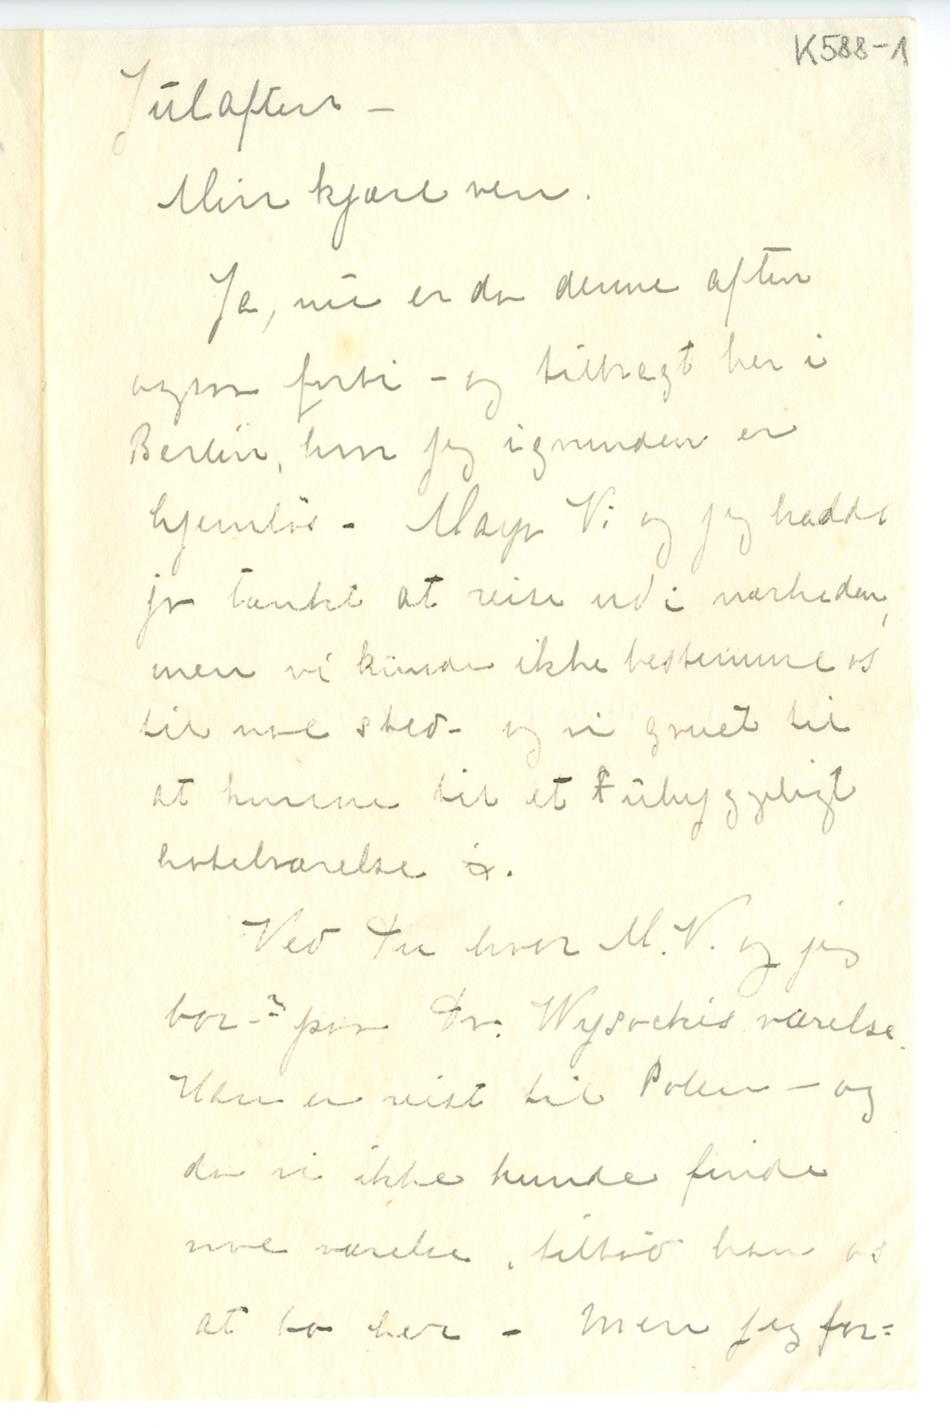 K588-1
Julaften –
Min kjære ven.
Ja, nu er da denne aften
ogsaa forbi – og tilbragt her i
Berlin, hvor jeg igrunden er
hjemløs – Maya V. og jeg hadde
jo tænkt at reise ud i nærheden,
men vi kunde ikke bestemme os
til noe sted – og vi gruet til
at komme til et uhyggeligt
hotelværelse.
Ved Du hvor M. V. og jeg
bor –? paa Dr. Wysockis værelse.
Han er reist til Polen – og
da vi ikke kunde finde
noe værelse, tilbød han os
at bo her – Men jeg for=